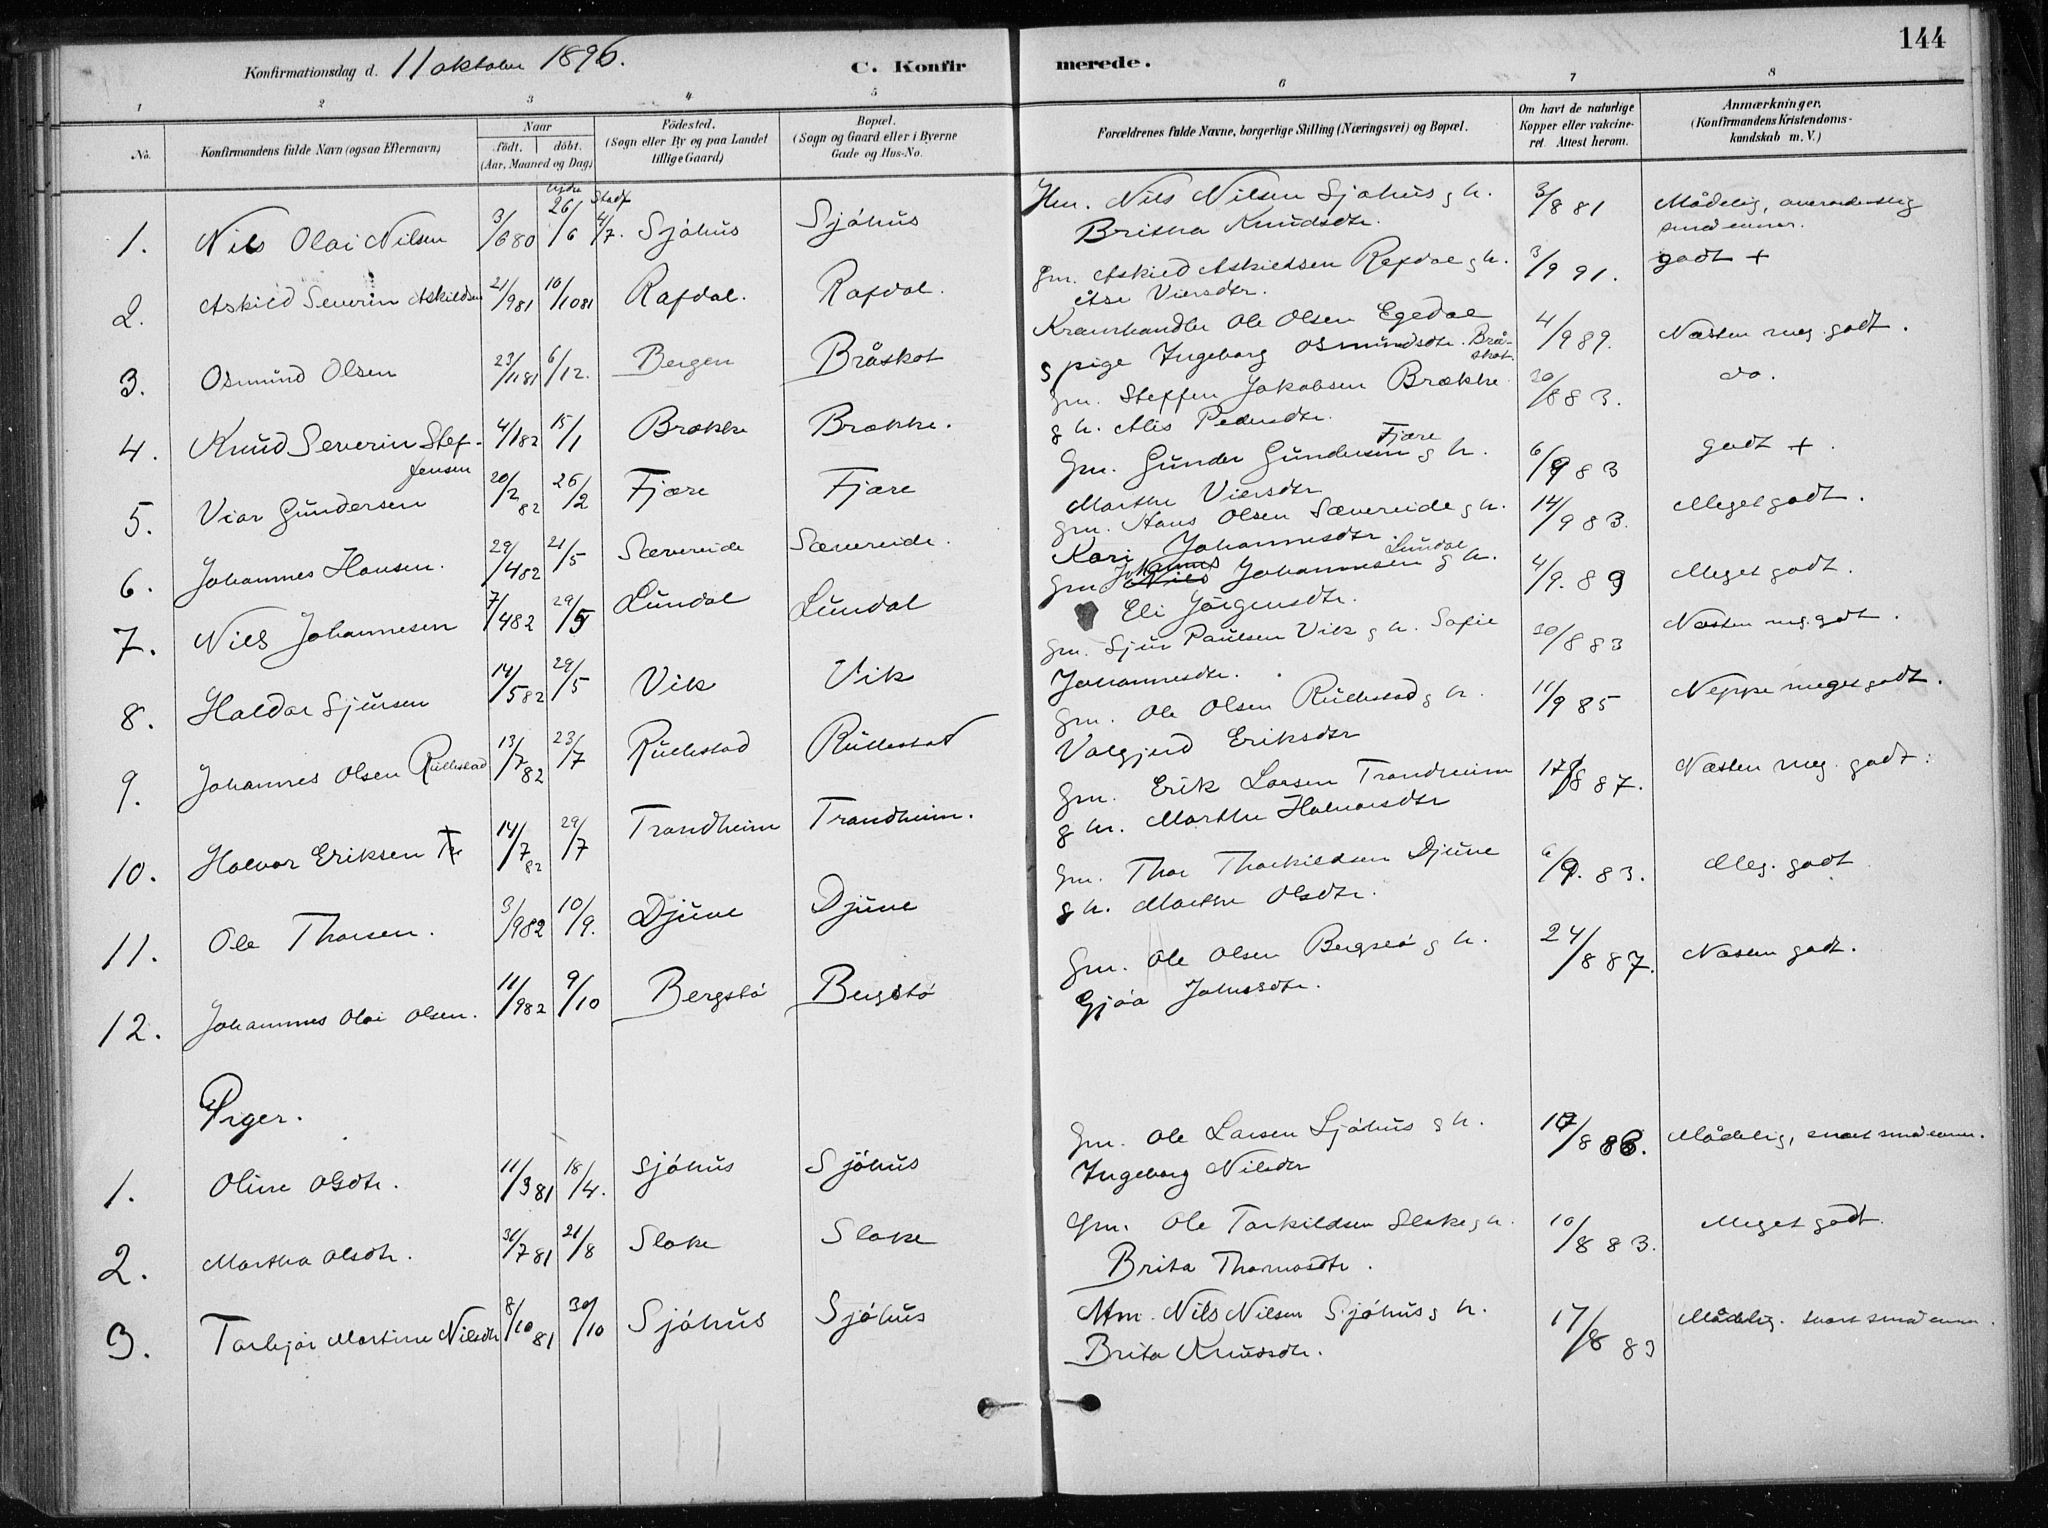 144
Konfirmationsdag d. 11 oktober 1896. C. Konfir merede.
1 2 3 4 5 6 7 8
No. Konfirmandens fulde Navn (ogsaa Efternavn) Naar födt. döbt. (Aar, Maaned og Dag) Födested. (Sogn eller By og paa Landet tillige Gaard) Bopæl. (Sogn og Gaard eller i Byerne Gade og Hus-No. Forældrenes fulde Navne, borgerlige Stilling (Næringsvei) og Bopæl. Om havt de naturlige Kopper eller vakcineret. Attest herom. Anmærkninger. (Konfirmandens Kristendomskundskab m. V.)
1. Nils Olai Nilsen 3/6 80 26/6 Stadf 4/7. Sjóhus Sjóhus Hm. Nils Nilsen Sjóhus g h. 3/8 81 Mådelig, overordentlig
Britha Knudsdtr. små evner.
2. Askild Severin Askildsen 21/9 81 10/10 81 Rafdal. Rafdal. Gm. Askild Askildsen Rafdal g h. 3/9 91. godt +
Åse Viersdtr.
3. Osmund Olsen 23/11 81 6/12. Bergen Bråskot Kramhandler Ole Olsen Egedal 4/9 89. Næsten meg. godt.
g pige Ingeborg Osmundsdtr. Bråskot.
4. Knud Severin Steffensen 4/1 82 15/1 Brække Brække. Gm. Steffen Jakobsen Brække 20/8 83. do.
g h. Alis Pedersdtr.
5. Viar Gundersen 20/2 82 26/2 Fjære Fjære Gm. Gunder Gundersen Fjære g h. 6/9 83 godt +.
Marthe Viersdtr
6. Johannes Hansen. 29/4 82 21/5 Sævereide Sævereide. Gm. Hans Olsen Sævereide g h. 14/9 83. Meget godt.
Kari Johannesdtr.
7. Nils Johannesen 7/4 82 29/5 Lundal Lundal Gm Johannes Johannesen Lundal g h. 4/9. 89 Meget godt.
Eli Jörgensdtr.
8. Haldor Sjursen 14/5 82 29/5 Vik Vik Gm. Sjur Paulsen Vik g h. Sofie 30/8 83 Næsten meg. godt.
Johannesdtr.
9. Johannes Olsen Rullestad 13/7 82 23/7 Rullestad Rullestad Gm. Ole Olsen Rullestad g h. 11/9 85 Neppe meget godt.
Valgjerd Eriksdtr
10. Halvor Eriksen Tr 14/7 82 29/7 Trandheim Trandheim. Gm. Erik Larsen Trandheim 17/8 87. Næsten meg. godt.
g h. Marthe Halvorsdtr
11. Ole Thorsen. 3/9 82 10/9. Djuve Djuve Gm. Thor Thorkildsen Djuve 6/9. 83. Meg. godt
g h. Marthe Olsdtr.
12. Johannes Olai Olsen. 11/9 82 9/10 Bergstó Bergstó Gm. Ole Olsen Bergstó g h. 24/8 87. Næsten godt.
Gjóa Johnsdtr.
Piger.
1. Oline Olsdtr. 11/3 81 18/4. Sjóhus Sjóhus Gm. Ole Larsen Sjóhus g h. 17/8 86. Mådelig, svært små evner.
Ingeborg Nilsdtr
2. Martha Olsdtr. 31/7 81 21/8 Slake Slake Gm. Ole Torkildsen Slake g h. 10/8 83. Meget godt.
Brita Thomasdtr.
3. Torbjór Martine Nilsdtr 8/10 81 30/10 Sjóhus Sjóhus Hm. Nils Nilsen Sjóhus g h. 17/8 83 Mådelig. svært små evner.
Brita Knudsdtr.